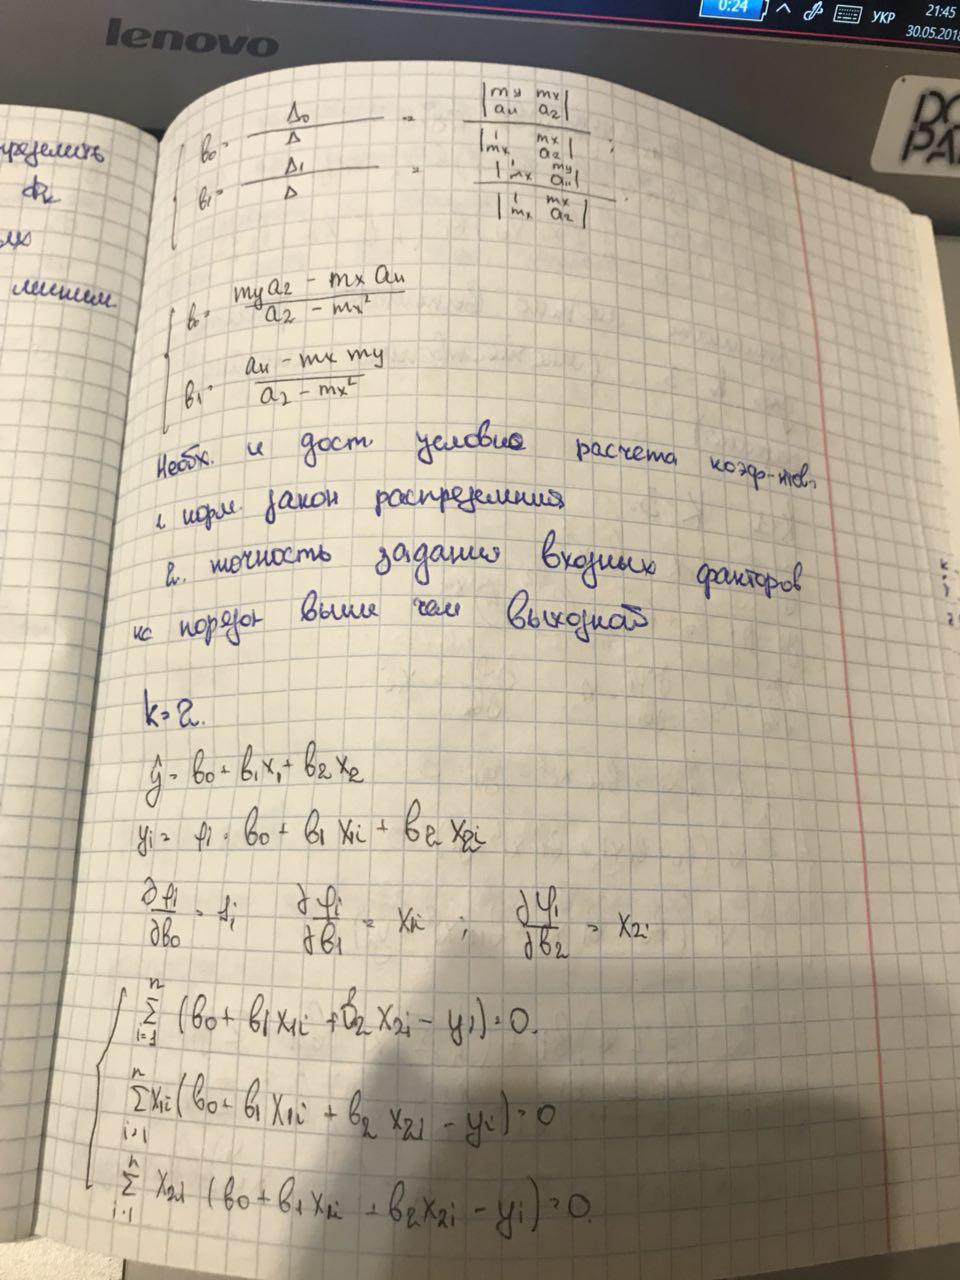 0:24
УКР
21:45
30.05.2018
lenovo
b₀ = Δ₀ / Δ = |my mx; a₁₁ a₂| / |1 mx; mx a₂| ;
b₁ = Δ₁ / Δ = |1 my; mx a₁₁| / |1 mx; mx a₂| .
b₀ = (my a₂ - mx a₁₁) / (a₂ - mx²)
b₁ = (a₁₁ - mx my) / (a₂ - mx²)
Необх. и дост. условие расчета коэф-тов.
1. норм. закон распределения
2. точность задания входных факторов
на порядок выше чем выходной
k = 2.
ŷ = b₀ + b₁x₁ + b₂x₂
yi = φi = b₀ + b₁ x₁i + b₂ x₂i
∂φi/∂b₀ = 1i ∂φi/∂b₁ = x₁i ; ∂φi/∂b₂ = x₂i
Σ i=1 n (b₀ + b₁x₁i + b₂x₂i - yi) = 0.
Σ i=1 n x₁i (b₀ + b₁x₁i + b₂x₂i - yi) = 0
Σ i=1 n x₂i (b₀ + b₁x₁i + b₂x₂i - yi) = 0.